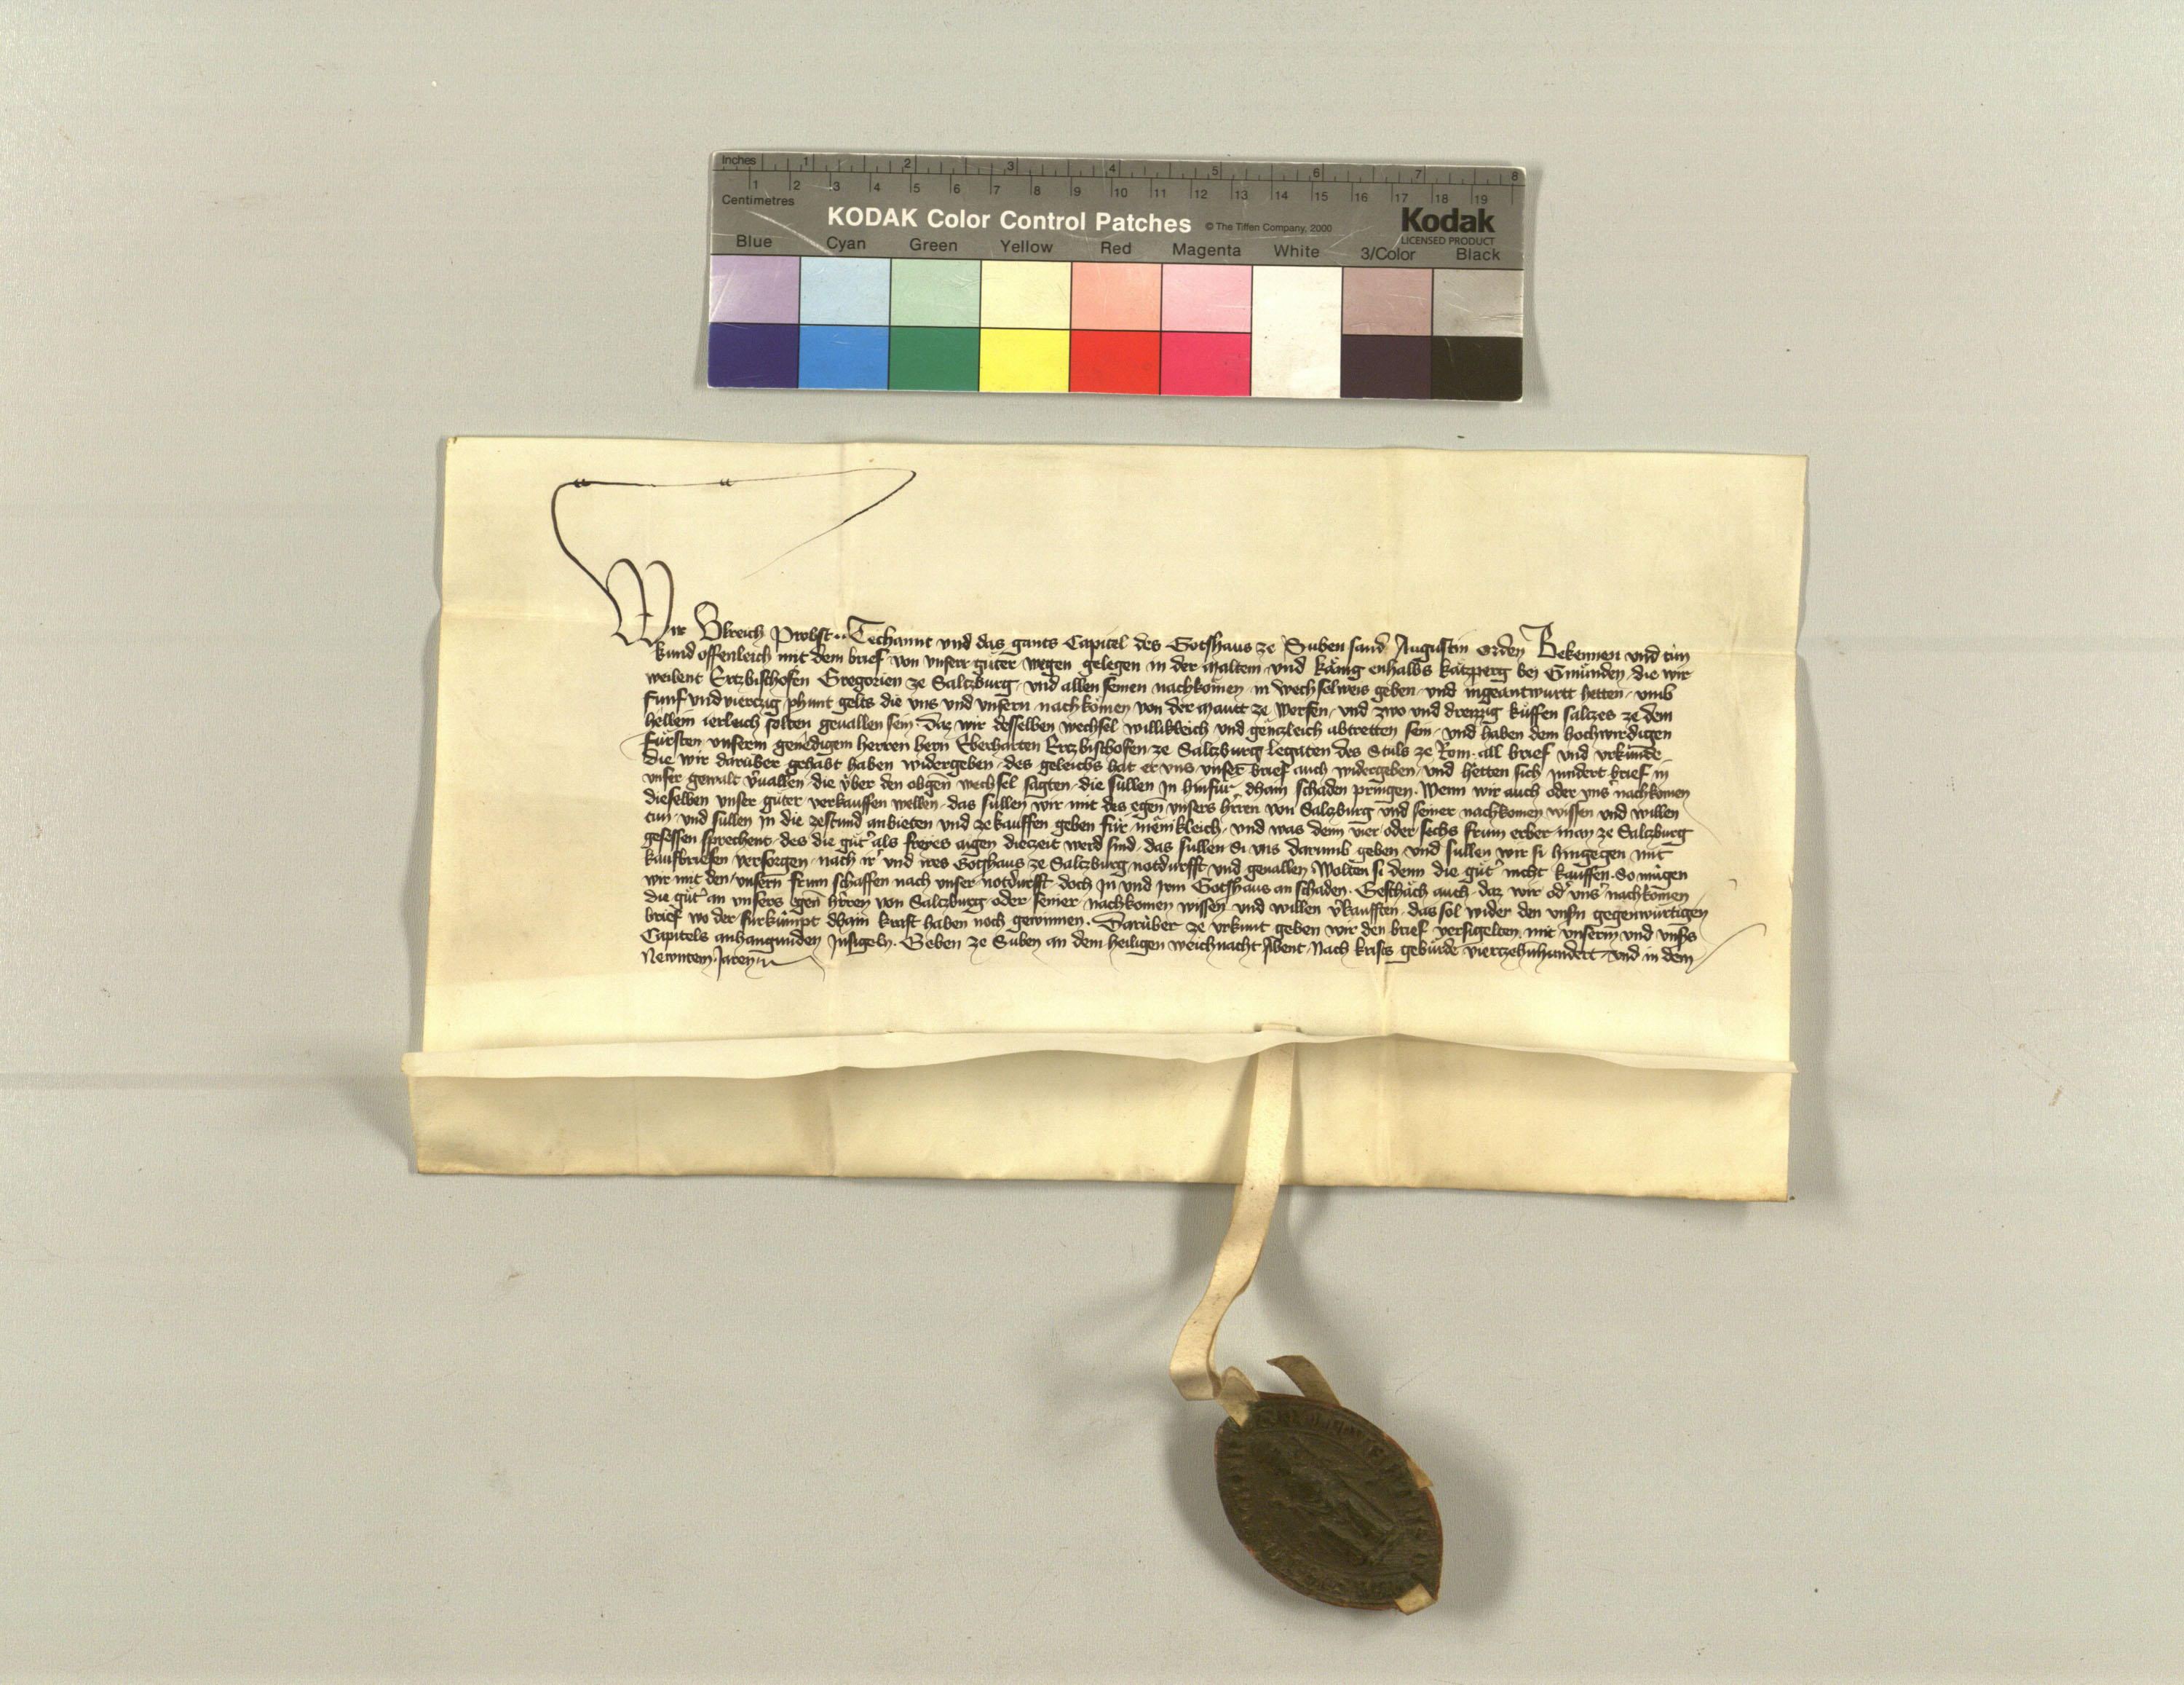 Inches 1 2 3 4 5 6 7 8
1 2 3 4 5 6 7 8 9 10 11 12 13 14 15 16 17 18 19
Centimetres
KODAK Color Control Patches © The Tiffen Company, 2000 Kodak
LICENSED PRODUCT
Blue Cyan Green Yellow Red Magenta White 3/Color Black
Wir Vlreich Probst ·· Techannt vnd das gants Capitel des Gotshaus ze Suben sand Augustin orden Bekennen vnd tun
kund offenleich mit dem brief von vnserr guter wegen gelegen in der Maltein vnd Kånig enhalbs Katzperg bei Gmunden, die wir
weilent Ertzbischofen Gregorien ze Saltzburg vnd allen seinen nachkomen in wechselweis geben vnd ingeantwurtt hetten vmb
funf vnd viertzig phunt gelts die vns vnd vnsern nachkomen von der Mautt ze Werfen, vnd zwo vnd dreyzzig kuffen saltzes ze dem
hellein ierleich solten geuallen sein. Daz wir desselben wechsel willikleich vnd gentzleich abtretten sein, vnd haben dem hochwirdigen
fursten vnserm genedigem herren hern Eberharten Ertzbischofen ze Saltzburg legaten des Stuls ze Rom all brief vnd vrkunde
die wir daruber gehabt haben widergeben, des geleichs hat er vns vnser brief auch widergeben, vnd hetten sich yndert brief in
vnser gewalt v̓uallen, die vber den obgen̄ wechsel sagten, die sullen in hinfur dhain schaden pringen. Wenn wir auch oder vns̓ nachkomen
dieselben vnser guter verkauffen wellen, das sullen wir mit des egen̄ vnsers hr̄ren von Saltzburg vnd seiner nachkomen wissen vnd willen
tun, vnd sullen in die zestund anbieten vnd ze kauffen geben fur menikleich, vnd was denn vier oder sechs frum erber man ze Saltzburg
gesessen sprechent, des die gut̓ als freyes aigen dietzeit werd sind, das sullen Si vns darumb geben vnd sullen wir si hingegen mit
kaufbriefen versorgen, nach ir̓ vnd irs Gotshaus ze Saltzburg notdurfft vnd geuallen. Wolten si denn die gut̓ nicht kauffen. So mugen
wir mit den vnsern frum schaffen nach vnser notdurfft doch in vnd irm Gotshaus an schaden. Geschach auch, daz wir od̓ vns̓ nachkomen
die gut̓ an vnsers egen̄ hr̄ren von Saltzburg oder seiner nachkomen wissen vnd willen v̓kaufften, das sol wider den vnsn̄ gegenwurtigen
brief wo der furkumpt dhain kraft haben noch gewinnen. Daruber ze vrkunt geben wir den brief versigelten mit vnserm vnd vnss̓
Capitels anhangunden Insigeln. Geben ze Suben an dem heiligen weichnacht Abent, Nach krists geburde viertzehenhundert vnd in dem
Newntem Jaren